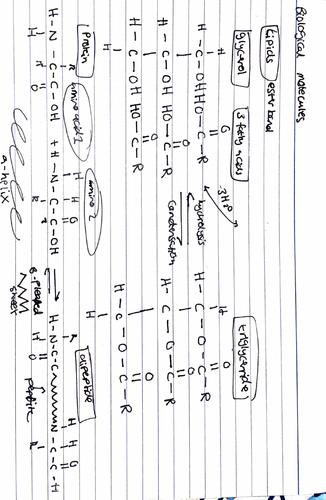 Biological molecules
Lipids ester bond
glycerol 3 fatty acids triglyceride
H H
H - C - OH HO - C - R H - C - O - C - R
O O
3H₂O
hydrolysis
H - C - OH HO - C - R H - C - O - C - R
O O
condensation
H - C - OH HO - C - R H - C - O - C - R
O O
H H
Protein amino acid 1 amino 2
R H H O R H H O
H - N - C - C - OH + H - N - C - C - OH H - N - C - C N - C - C - H
H H O R H O R
α-helix
β-pleated
sheet